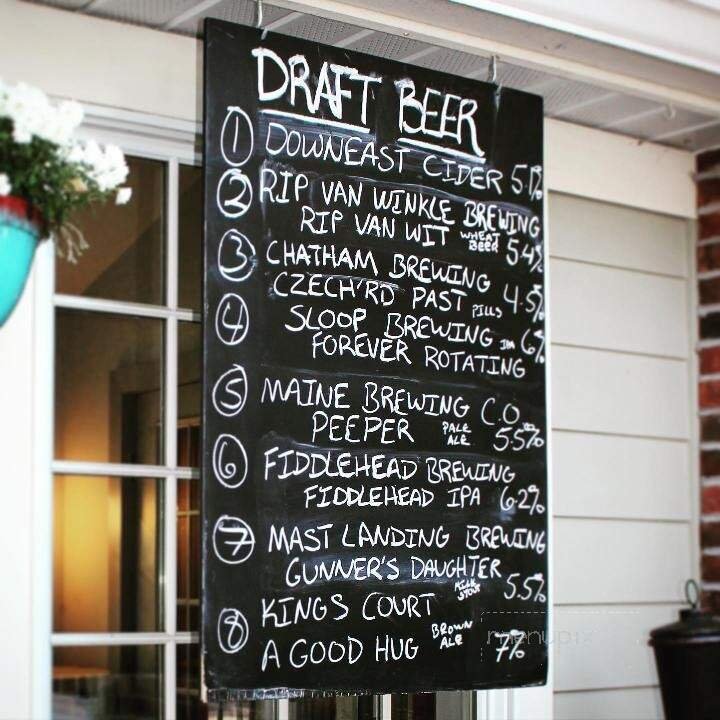 DRAFT BEER
1 DOWNEAST CIDER 5.1%
2 RIP VAN WINKLE BREWING
RIP VAN WIT WHEAT BEER 5.4%
3 CHATHAM BREWING
CZECH'RD PAST PILLS 4.5%
4 SLOOP BREWING IPA 6%
FOREVER ROTATING
5 MAINE BREWING C.O.
PEEPER PALE ALE 5.5%
6 FIDDLEHEAD BREWING
FIDDLEHEAD IPA 6.2%
7 MAST LANDING BREWING
GUNNER'S DAUGHTER
MILK STOUT 5.5%
8 KINGS COURT
A GOOD HUG BROWN ALE 7%
menupix